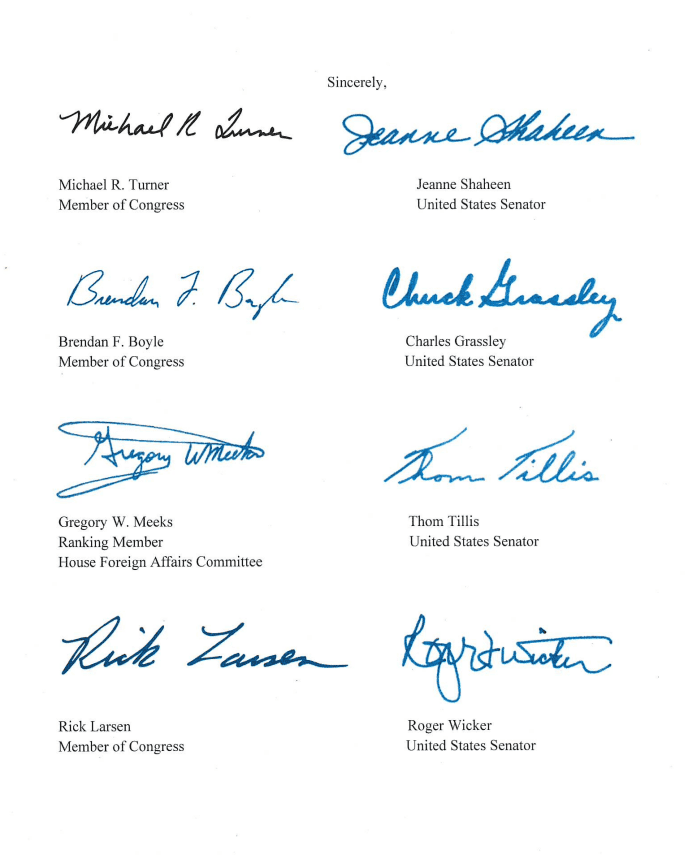 Sincerely,
Michael R Turner
Jeanne Shaheen
Michael R. Turner
Member of Congress
Jeanne Shaheen
United States Senator
Brendan F. Boyle
Chuck Grassley
Brendan F. Boyle
Member of Congress
Charles Grassley
United States Senator
Gregory W Meeks
Thom Tillis
Gregory W. Meeks
Ranking Member
House Foreign Affairs Committee
Thom Tillis
United States Senator
Rick Larsen
Roger F Wicker
Rick Larsen
Member of Congress
Roger Wicker
United States Senator